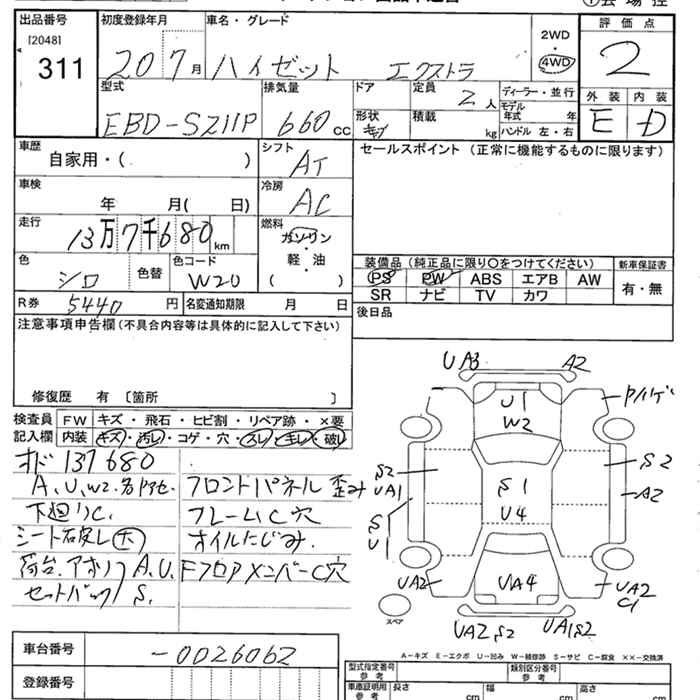 出品番号 初度登録年月 車名・グレード 2WD 評価点
[2048] 20 7月 ハイゼット エクストラ 4WD 2
311
型式 排気量 ドア 定員 ディーラー・並行 外装 内装
2人 モデル年式 年
EBD-S211P 660cc 形状 積載 kg ハンドル 左・右 E D
車歴 自家用・( ) シフト AT セールスポイント(正常に機能するものに限ります)
車検 年 月( 日) 冷房 AC
走行 13万7千680km 燃料 ガソリン
軽・油
( )
色 シロ 色替 色コード W20
装備品(純正品に限り○をつけてください) 新車保証書
PS PW ABS エアB AW 有・無
SR ナビ TV カワ
R券 5440円 名変通知期限 月 日
注意事項申告欄(不具合内容等は具体的に記入して下さい) 後日品
修復歴 有 [箇所 ]
検査員 FW キズ・飛石・ヒビ割・リペア跡・×要
記入欄 内装 キズ・汚レ・コゲ・穴・スレ・キレ・破レ
オド137680
A、U、W2.
下廻りC.
A.U.
S.
フロントパネル歪み
フレームC穴
オイルにじみ.
FフロアメンバーC穴
UA3 A2
U1
W2
S2
UA1
S2
A2
S1
U4
S
U1
UA2
UA4
UA2
C1
スペア
UA2 S2 UA1S2
A-キズ E-エクボ U-凹み W-補修跡 S-サビ C-腐食 ××-交換済
車台番号 -0026062
登録番号
型式指定番号 参考 類別区分番号 参考
車庫証明用 参考 長さ cm 幅 cm 高さ cm